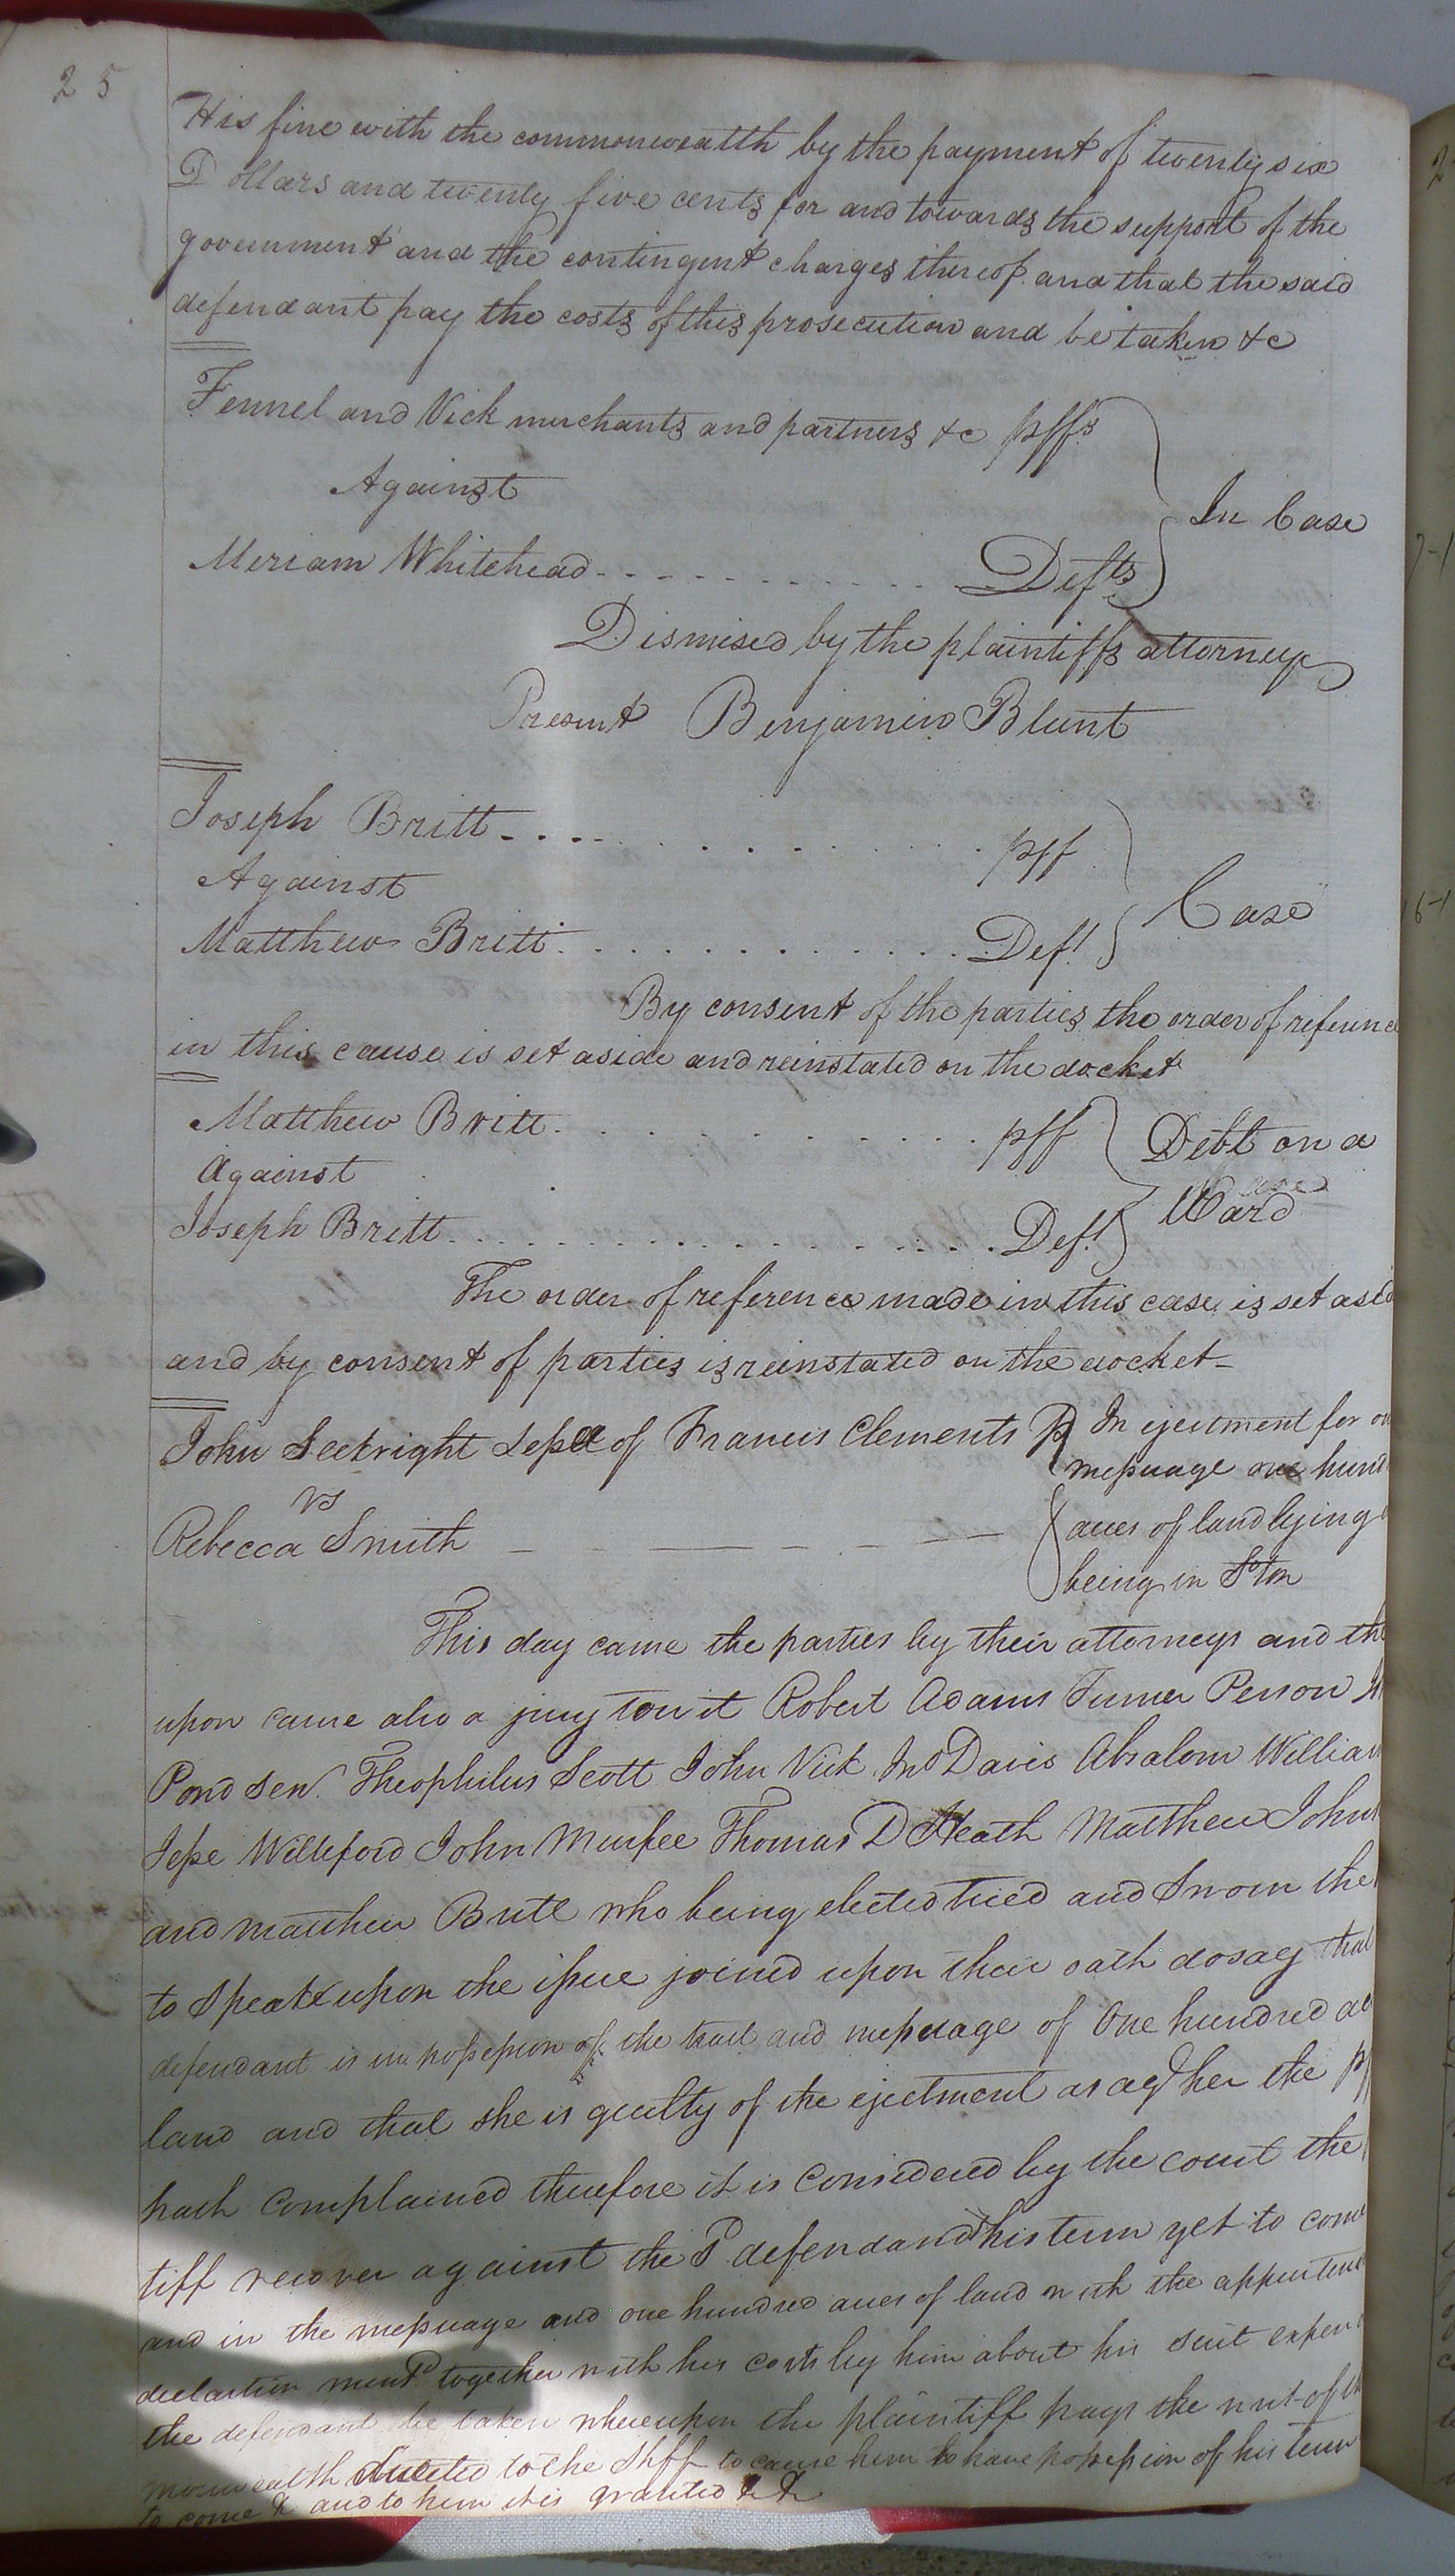 25
His fine with the commonwealth by the payment of twenty six
Dollars and twenty five cents for and towards the support of the
government and the contingent charges thereof and that the said
defendant pay the costs of this prosecution and be taken &c
Fennel and Vick merchants and partners &c pffs
Against
In Case
Meriam Whitehead Defts
Dismised by the plaintiffs attorney
Present Benjamin Blunt
Joseph Britt pff
Against
Case
Matthew Britt Deft
By consent of the parties the order of referenc
in this cause is set aside and reinstated on the docket
Matthew Britt pff Debt on a
Against
Ward
Joseph Britt Deft
The order of reference made in this case is set asid
and by consent of parties is reinstated on the docket
John Seekright Lessee of Francis Clements P In ejectment for on
messuage one hund
vs
acres of land lying
Rebecca Smith
being in So ton
This day came the parties by their attorneys and the
upon came also a jury towit Robert Adams Turner Person
Pond Sen. Theophilus Scott John Vick Jno Davis Absalom William
Jesse Williford John Murfee Thomas D Heath Matthew Johns
and matthew Britt who being elected tried and Sworn the
to Speak upon the issue joined upon their oath do say that
defendant is in possession of the tract and messuage of One hundred ac
land and that she is guilty of the ejectment as agt her the
hath Complained therefore it is Considered by the court the
tiff recover against the sd defendand his term yet to come
and in the messuage and one hundred acres of land with the appurtene
declartion mentd together with his costs by him about his suit expen
the defendant be taken whereupon the plaintiff prays the writ of
monwealth directed to the Shff to cause him to have possession of his term
to come & and to him it is granted &c &c